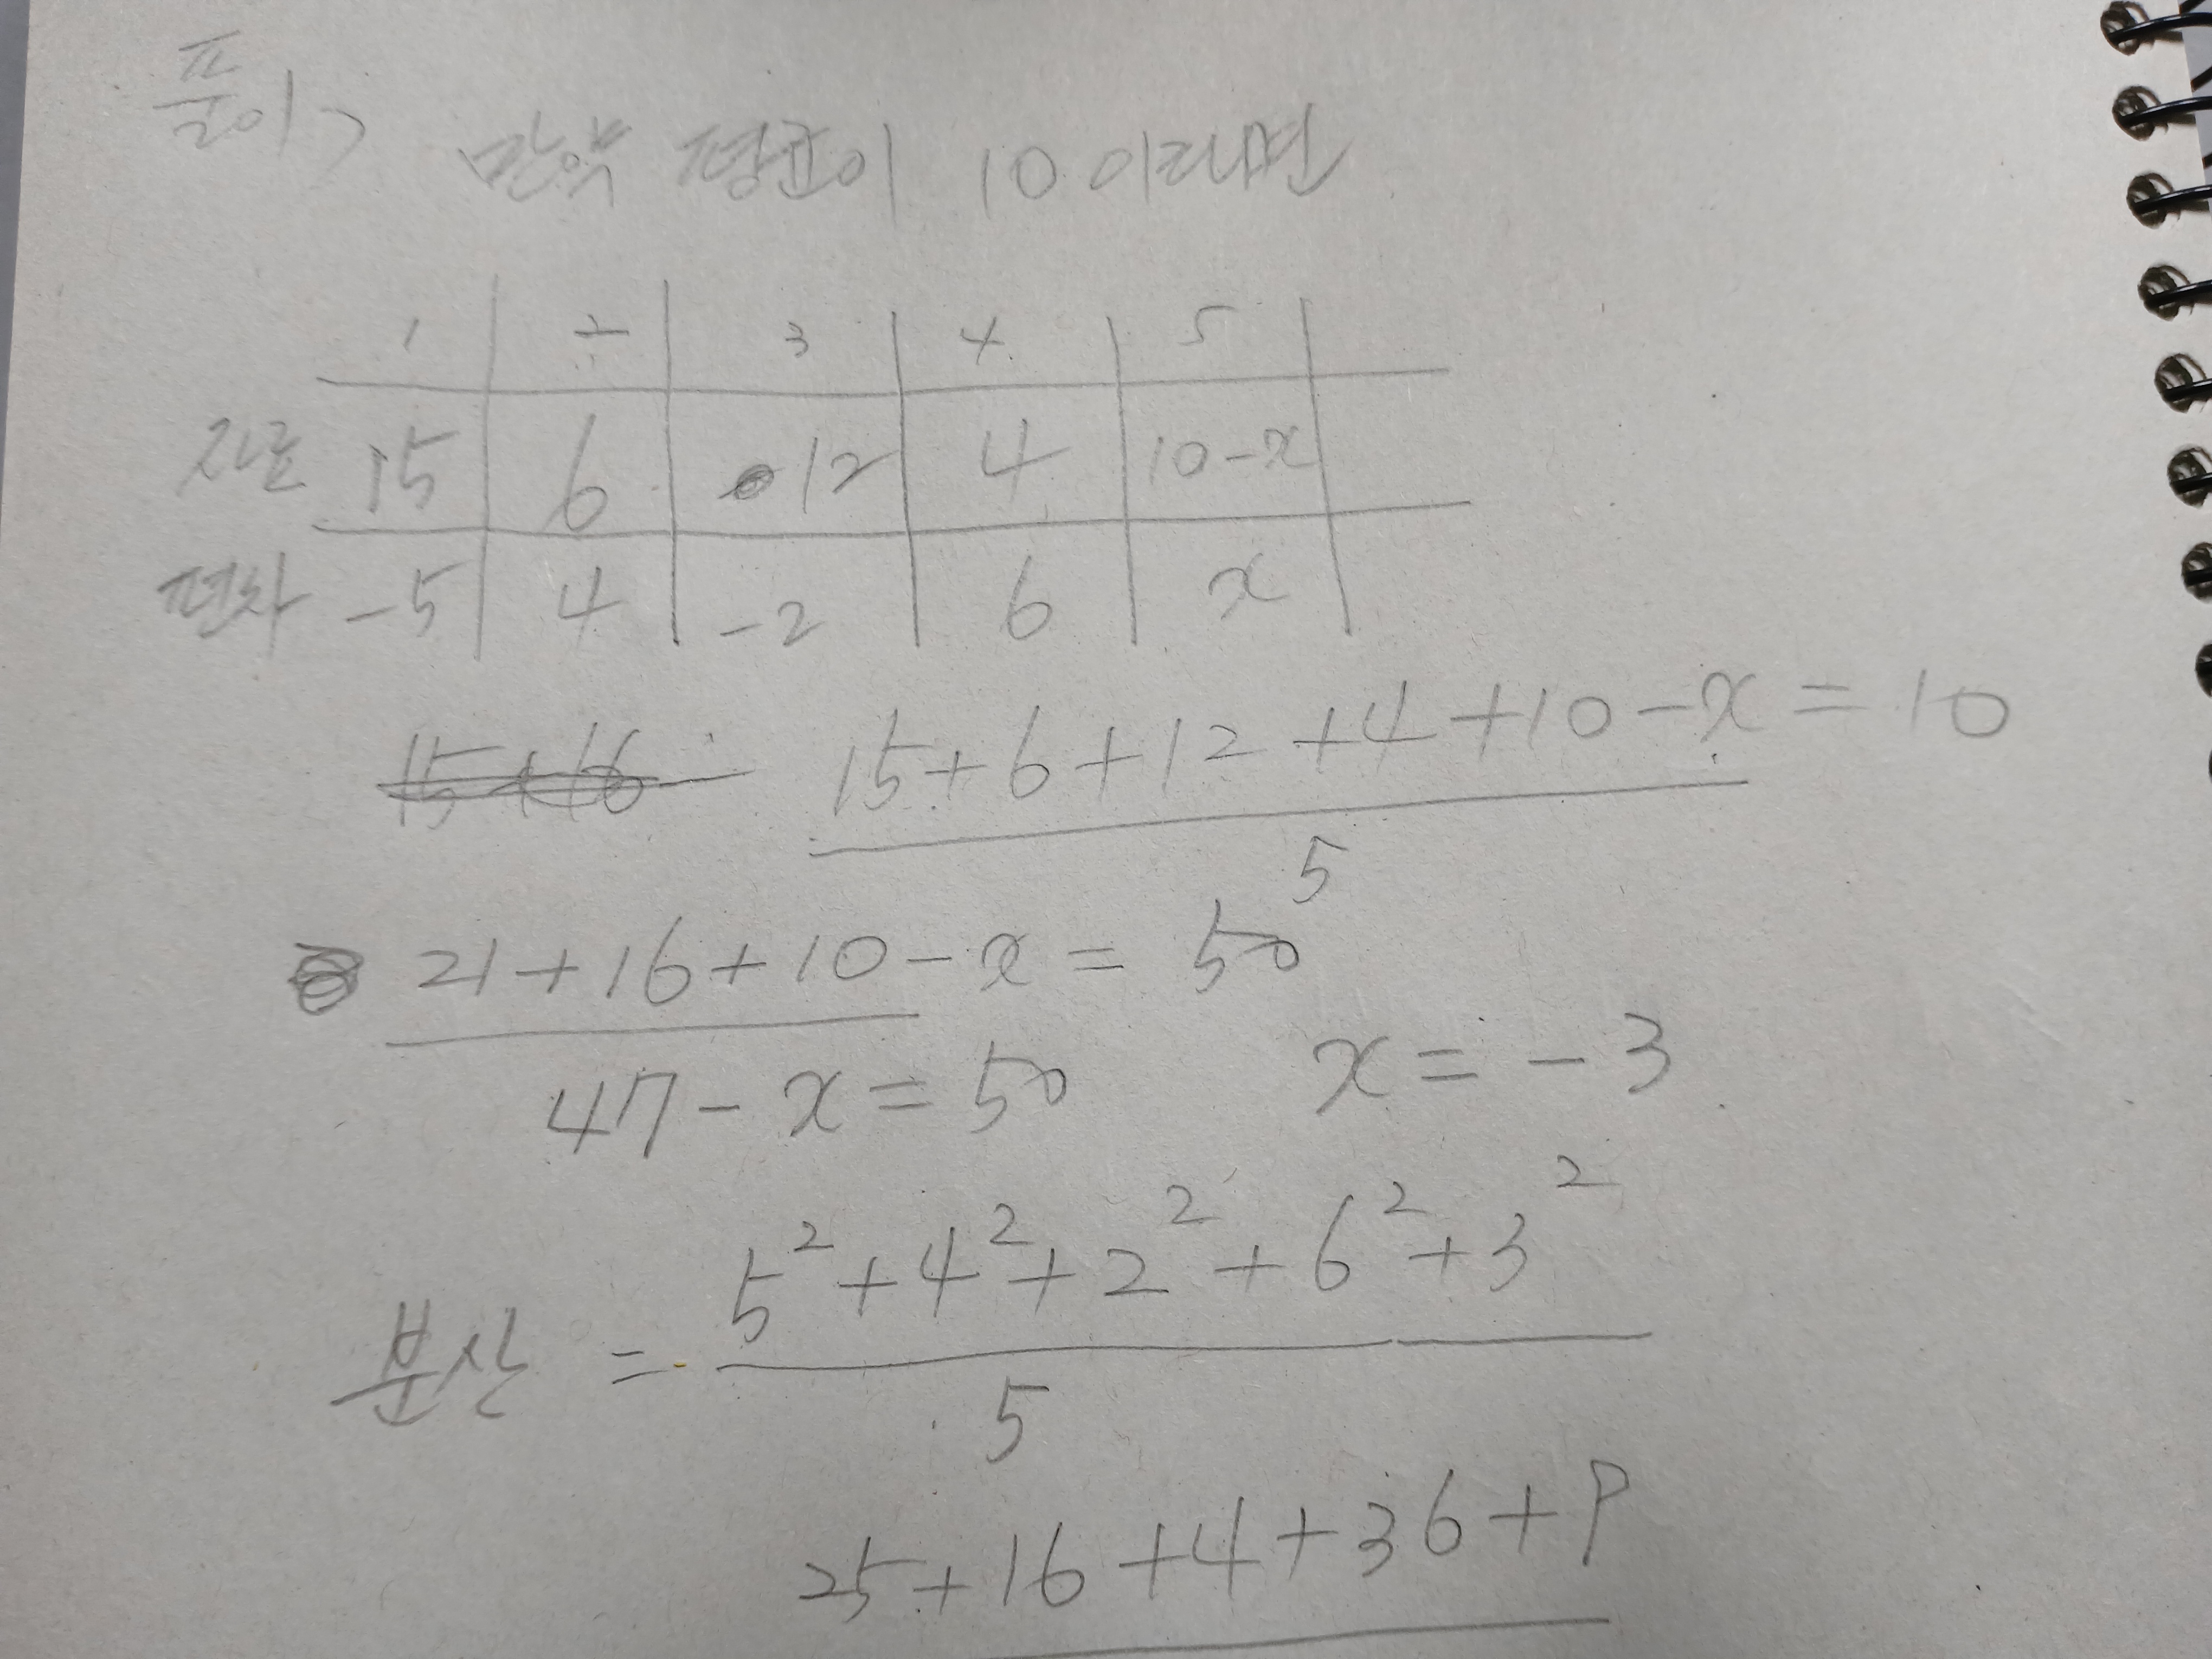 풀이>
만약 평균이 10이라면
1 2 3 4 5
자료 15 6 12 4 10-x
편차 -5 4 -2 6 x
15+16
15+6+12+4+10-x = 10
5
21+16+10-x = 50
47-x = 50 x = -3
5²+4²+2²+6²+3²
분산 =
5
25+16+4+36+9